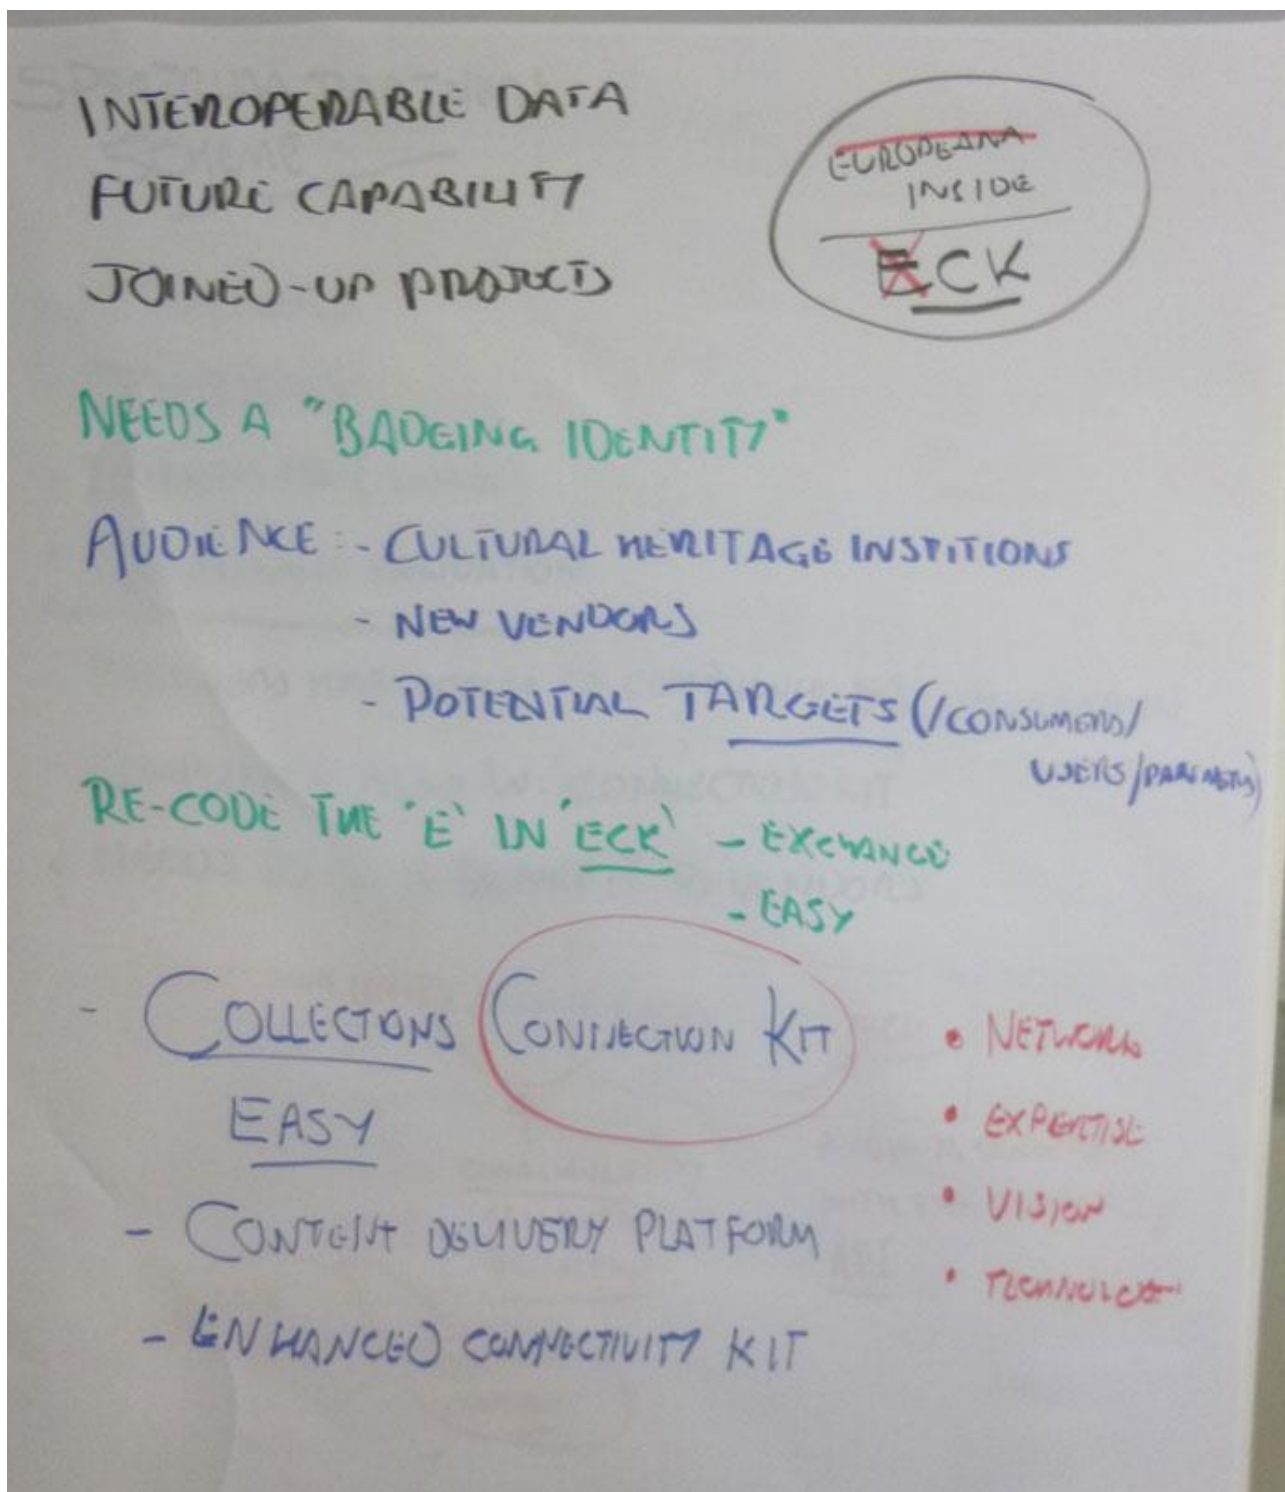 INTEROPERABLE DATA
FUTURE CAPABILITY
JOINED-UP PROJECTS
EUROPEANA
INSIDE
ECK
NEEDS A "BADGING IDENTITY"
AUDIENCE :- CULTURAL HERITAGE INSTITIONS
- NEW VENDORS
- POTENTIAL TARGETS (/CONSUMERS/
USERS/PARTNERS)
RE-CODE THE 'E' IN 'ECK' - EXCHANGE
- EASY
- COLLECTIONS CONNECTION KIT
EASY
- CONTENT DELIVERY PLATFORM
- ENHANCED CONNECTIVITY KIT
• NETWORK
• EXPERTISE
• VISION
• TECHNOLOGY